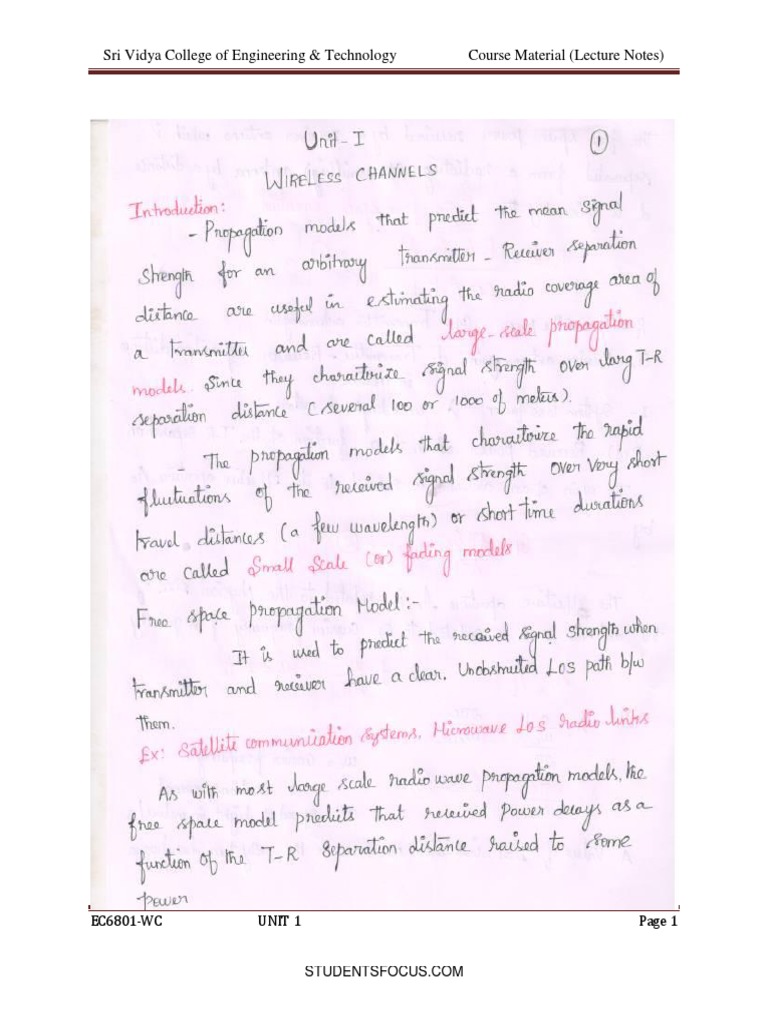 Sri Vidya College of Engineering & Technology Course Material (Lecture Notes)
Unit-I 1
WIRELESS CHANNELS
Introduction:
- Propagation models that predict the mean signal
strength for an arbitrary transmitter - Receiver separation
distance are useful in estimating the radio coverage area of
a transmitter and are called large-scale propagation
models. Since they charaiterize signal strength over larg T-R
separation distance (several 100 or 1000 of meters).
- The propagation models that charaiterize the rapid
fluctuations of the received signal strength over very short
travel distances (a few wavelength) or short time durations
are called Small Scale (or) fading models.
Free space propagation Model:-
It is used to predict the received signal strength when
transmitter and receiver have a clear, Unobstructed LOS path b/w
them.
Ex: Satellite communication systems, Microwave LOS radio links
As with most large scale radio wave propagation models, the
free space model prediits that received power decays as a
function of the T-R separation distance raised to some
power
EC6801-WC UNIT 1 Page 1
STUDENTSFOCUS.COM